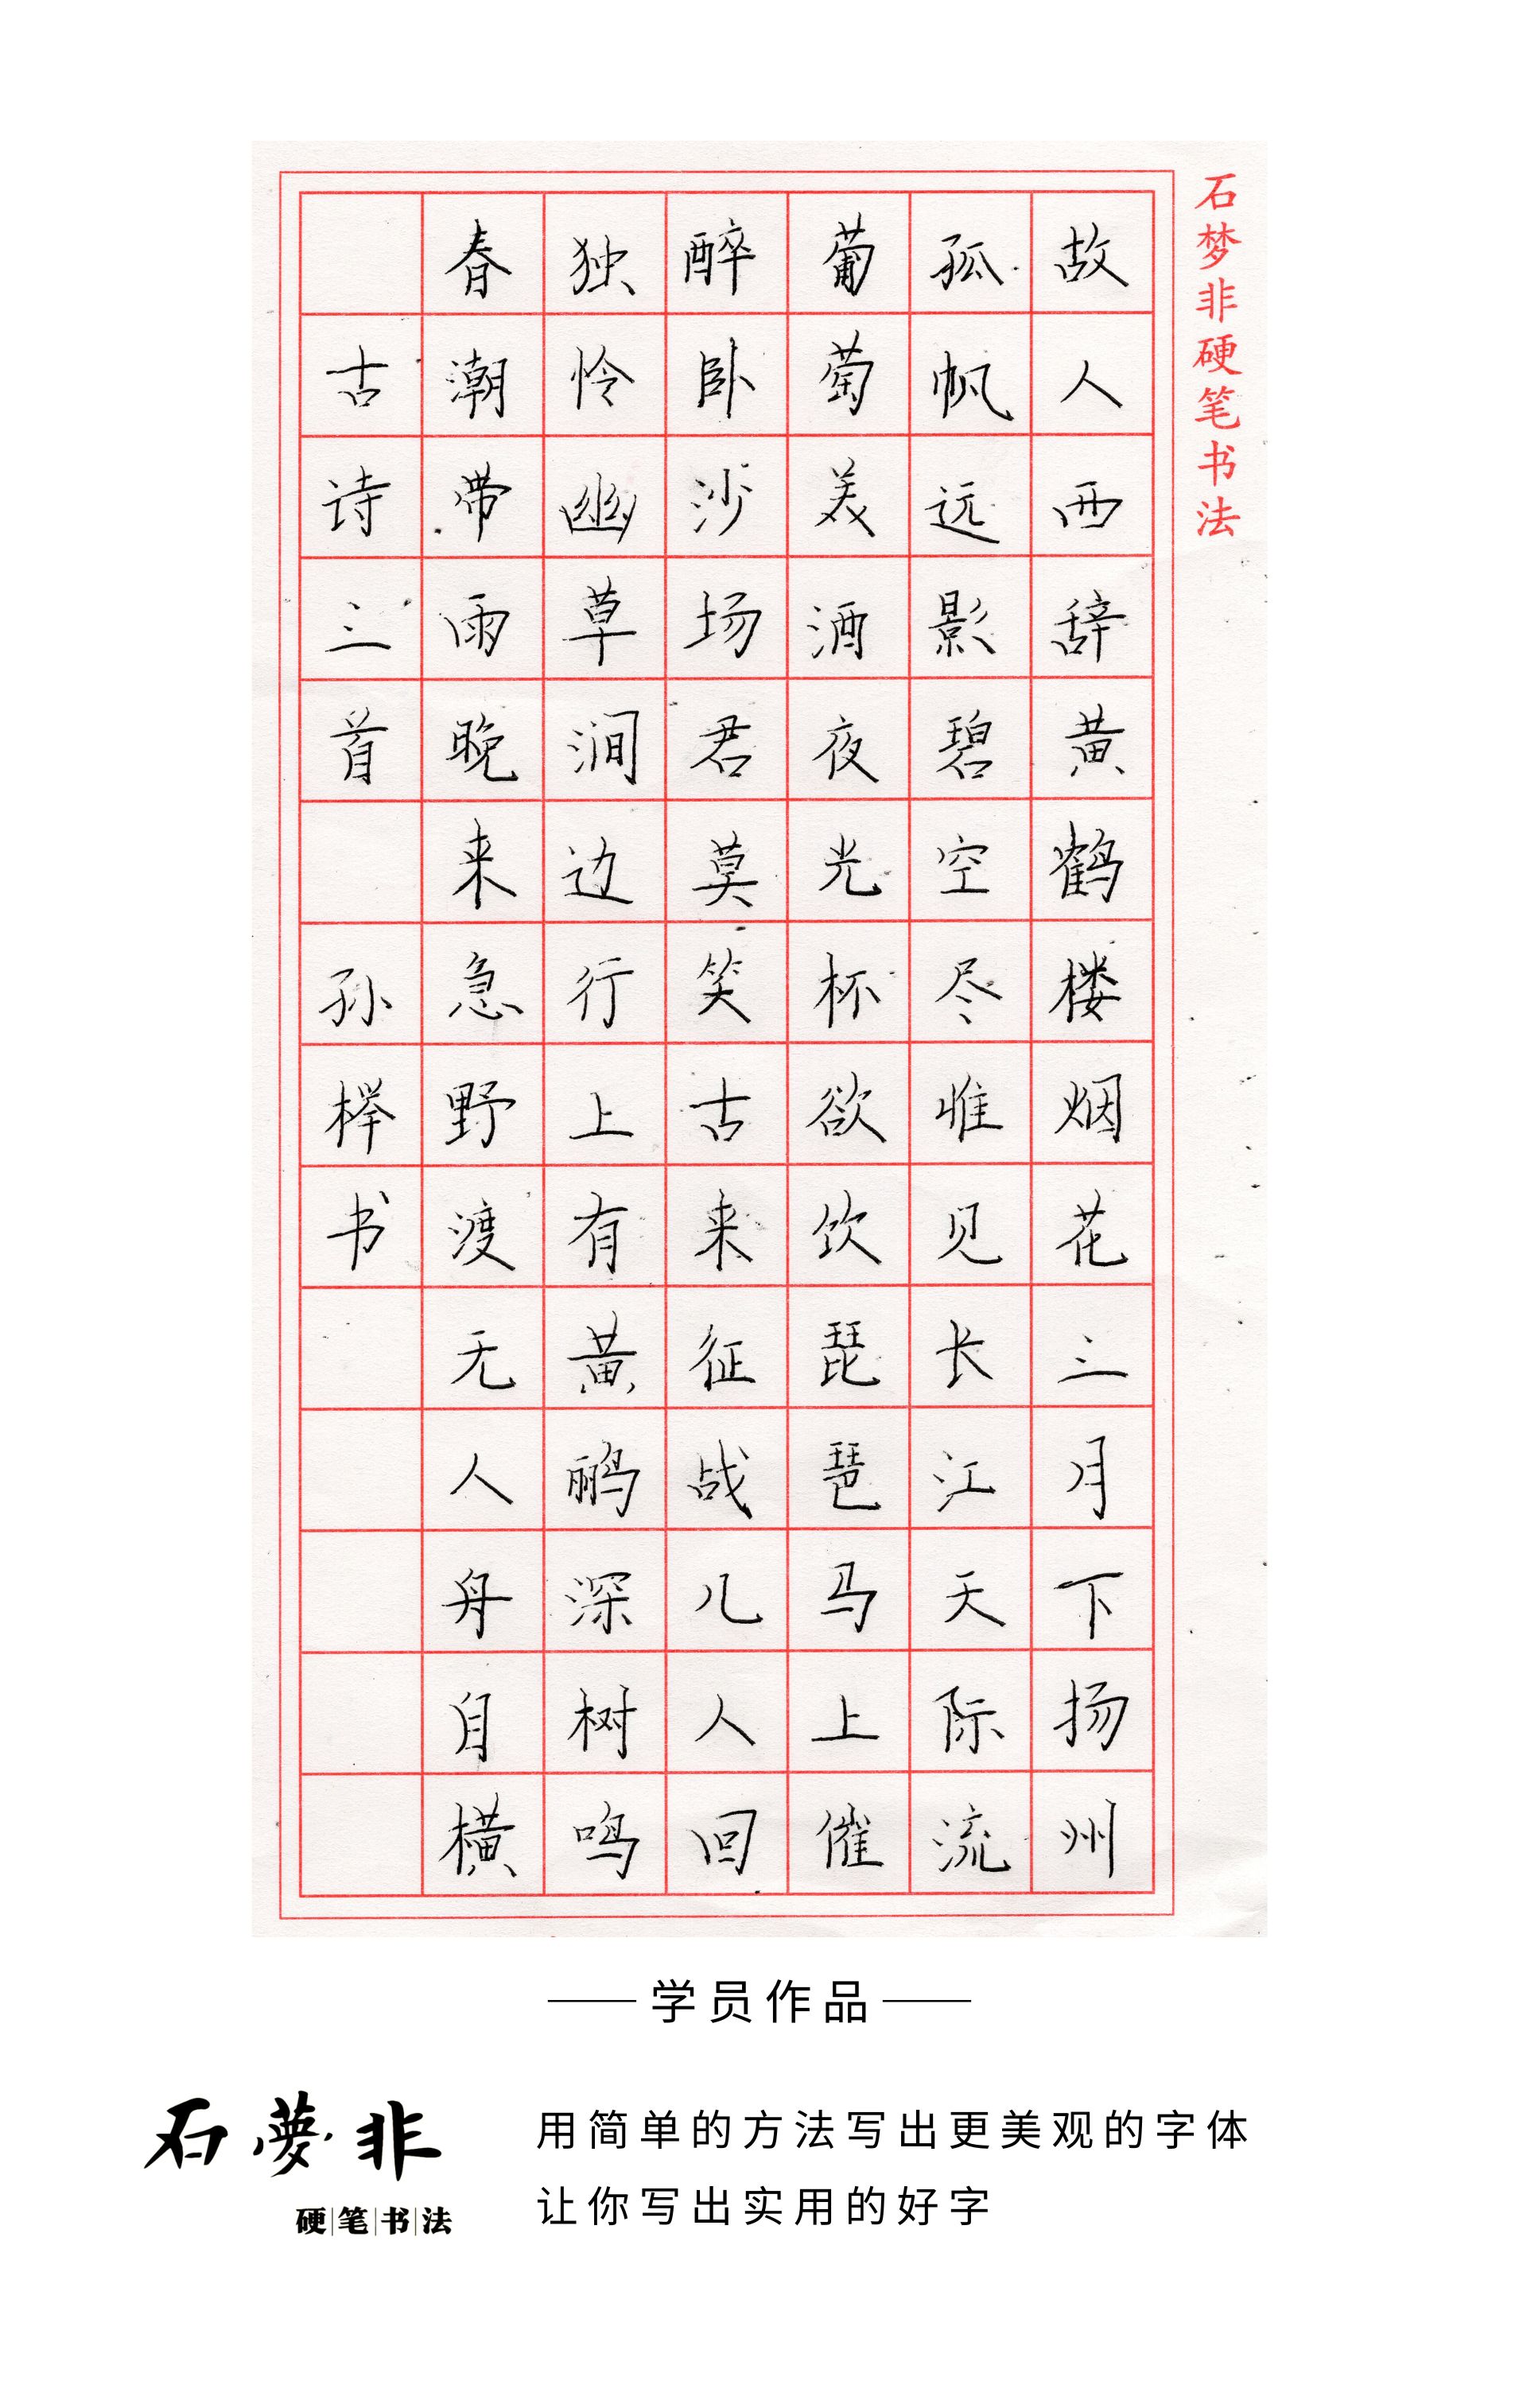 石梦非硬笔书法
故人西辞黄鹤楼烟花三月下扬州
孤帆远影碧空尽惟见长江天际流
葡萄美酒夜光杯欲饮琵琶马上催
醉卧沙场君莫笑古来征战几人回
独怜幽草涧边行上有黄鹂深树鸣
春潮带雨晚来急野渡无人舟自横
古诗三首 孙榉书
学员作品
石夢非
硬笔书法
用简单的方法写出更美观的字体
让你写出实用的好字